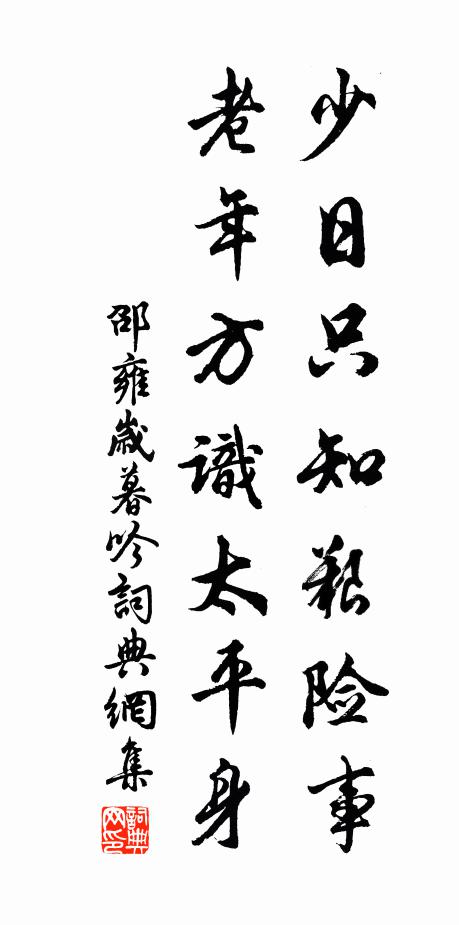 少日只知艱险事
老年方識太平身
邵雍歲暮吟詞典網集
詞典网印